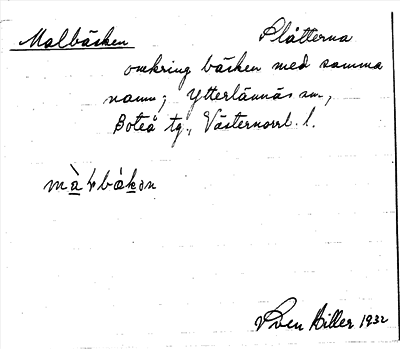 Malbäcken Slåtterna
omkring bäcken med samma
namn; Ytterlännäs sn,
Boteå tg., Västernorrl. l.
Sven Biller 1932